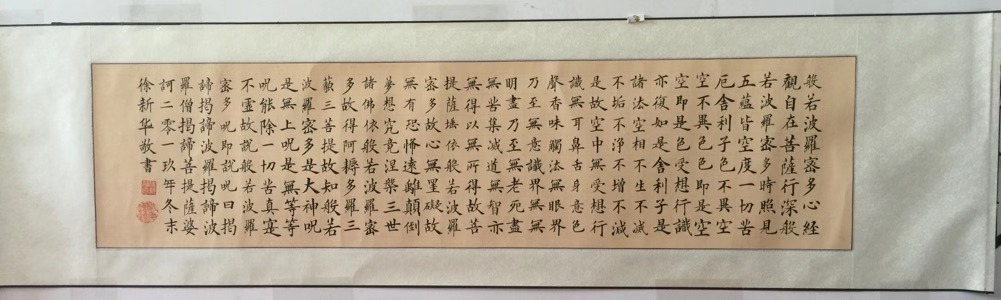 般若波羅密多心經
觀自在菩薩行深般
若波羅密多時照見
五蘊皆空度一切苦
厄舍利子色不異空
空不異色色即是空
空即是色受想行識
亦復如是舍利子是
諸法空相不生不滅
不垢不淨不增不減
是故空中無受想行
識無耳鼻舌身意色
聲香味觸法無眼界
乃至無意識界無無
明盡乃至無老死盡
無苦集滅道無智亦
無得以無所得故菩
提薩埵依般若波羅
密多故心無罣礙故
無有恐怖遠離顛倒
夢想究竟涅槃三世
諸佛依般若波羅密
多故得阿耨多羅三
藐三菩提故知般若
波羅密多是大神呪
是無上呪是無等等
呪能除一切苦真寔
不虛故說般若波羅
密多呪即說呪曰揭
諦揭諦波羅揭諦波
羅僧揭諦菩提薩婆
訶二零一玖年冬末
徐新华敬書